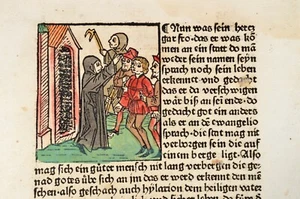 ¶ Nun was sein hertz
gar fro. das er was kö
men an ein stat do mā
weder sein namen seyn
sprach noch sein leben
erkennet · und gedacht
das er da verschwigen
wär biß an sei ende · do
gedacht got ein anders
als er an dē ewangelio
sprach · die stat mag nit
verborgen sein die auf
einem berge ligt · Also
mag sich ein gůter mensch nit lang verbergen die ge
nad gotes übe sich an jm das er werd erkennet den mē
schen · also geschach auch hylarion dem heiligen vater